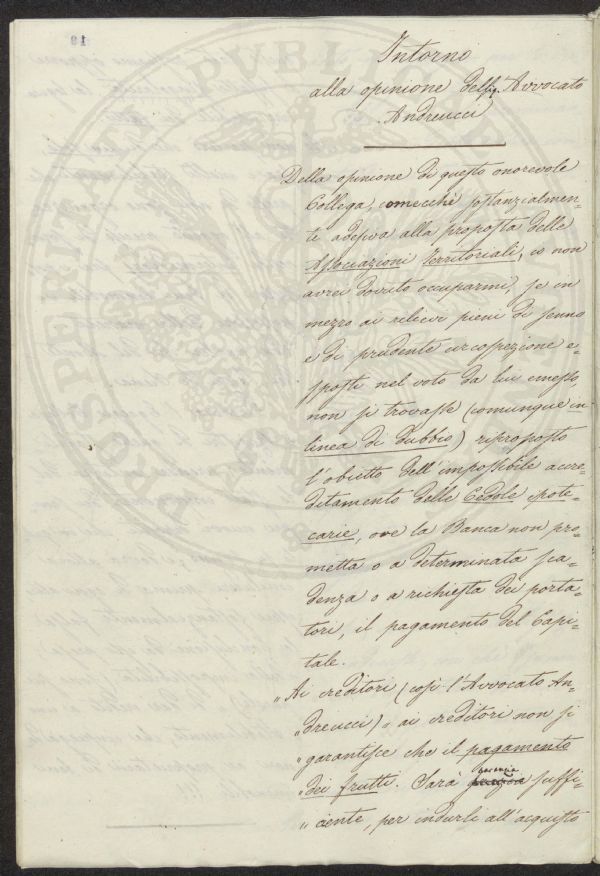 Intorno
alla opinione del Sig. Avvocato
Andreucci
Della opinione di questo onorevole
Collega, comecchè sostanzialmen-
te adesiva alla proposta delle
Associazioni territoriali, io non
avrei dovuto occuparmi, se in
mezzo ai rilievi pieni di senno
e di prudente circospezione e-
sposti nel voto da lui emesso
non si trovasse (comunque in
linea di dubbio) riproposto
l'obietto dell'impossibile accre-
ditamento delle Cedole ipote-
carie, ove la Banca non pro-
metta o a determinata sca-
denza o a richiesta dei porta-
tori, il pagamento del Capi-
tale.
„Ai creditori (così l'Avvocato An-
„dreucci) „ ai creditori non si
„garantisce che il pagamento
„dei frutti. Sarà garanzia suffi-
„ciente, per indurli all'acquisto
PROSPERITATI PVBLICAE